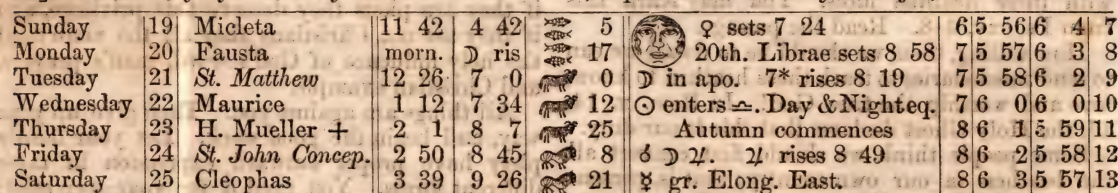 Sunday 19 Micleta 11 42 4 42 5 ♀ sets 7 24 6 5 56 6 4 7
Monday 20 Fausta morn. ☽ ris 17 20th. Librae sets 8 58 7 5 57 6 3 8
Tuesday 21 St. Matthew 12 26 7 0 0 ☽ in apo. 7* rises 8 19 7 5 58 6 2 9
Wednesday 22 Maurice 1 12 7 34 12 ☉ enters ♎. Day & Night eq. 7 6 0 6 0 10
Thursday 23 H. Mueller + 2 1 8 7 25 Autumn commences 8 6 1 5 59 11
Friday 24 St. John Concep. 2 50 8 45 8 ☌ ☽ ♃. ♃ rises 8 49 8 6 2 5 58 12
Saturday 25 Cleophas 3 39 9 26 21 ☿ gr. Elong. East. 8 6 3 5 57 13